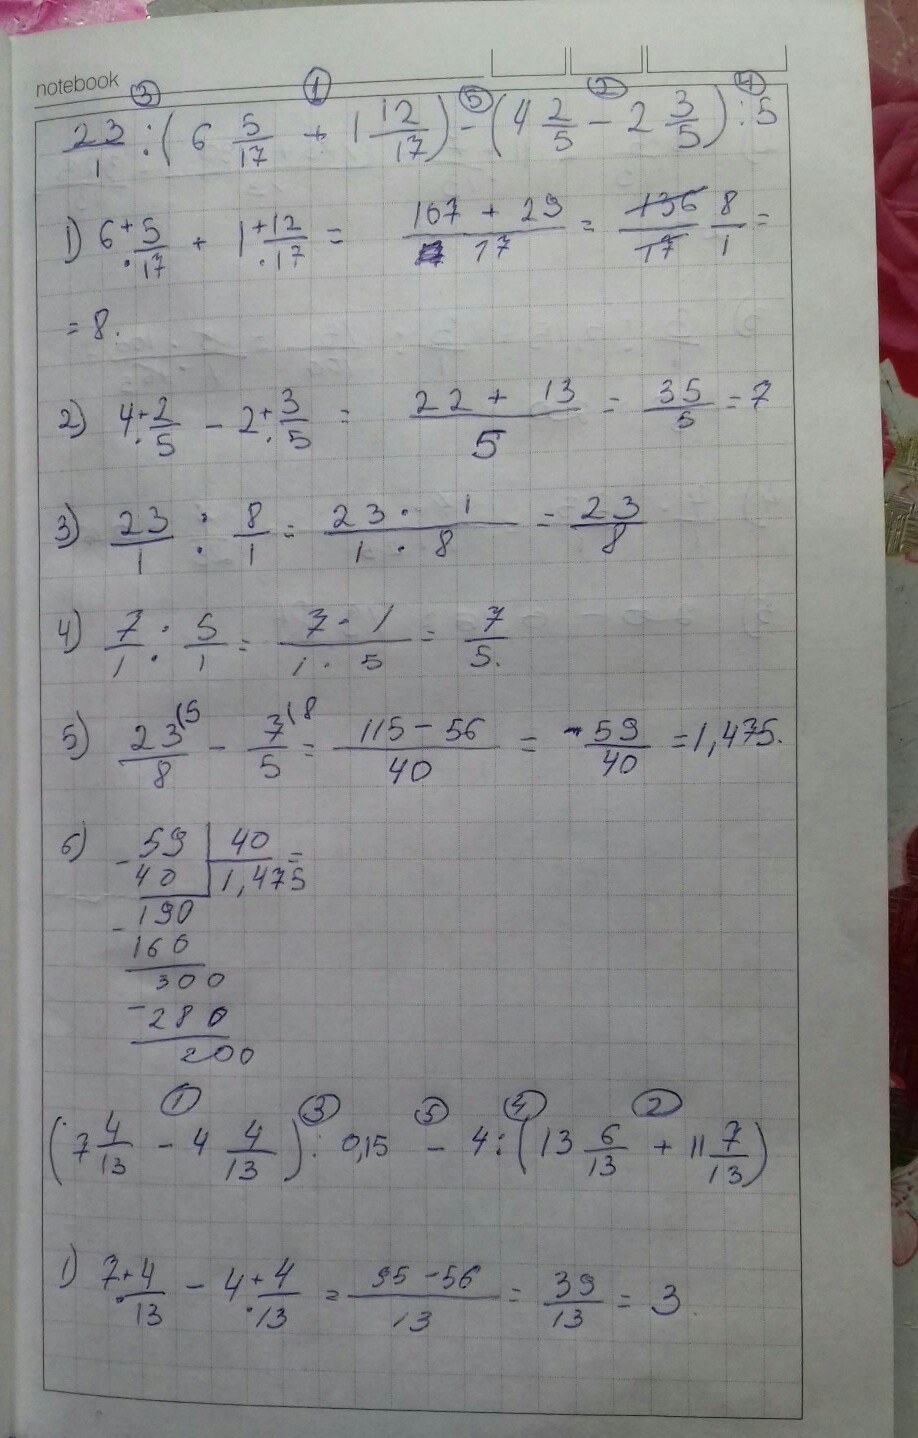 notebook
③ ① ⑤ ② ④
23/1 : (6 5/17 + 1 12/17) - (4 2/5 - 2 3/5) : 5
1) 6+5/·17 + 1+12/·17 = 107 + 29/17 = 136/17 8/1 =
= 8.
2) 4+2/·5 - 2+3/·5 = 22 + 13/5 = 35/5 = 7
3) 23/1 : 8/1 = 23 · 1/1 · 8 = 23/8
4) 7/1 : 5/1 = 7 · 1/1 · 5 = 7/5.
5) 23(5/8 - 7(8/5 = 115 - 56/40 = 59/40 = 1,475.
6) - 59 | 40 =
40 | 1,475
- 190
160
300
- 280
200
① ③ ⑤ ④ ②
(7 4/13 - 4 4/13) : 0,15 - 4 : (13 6/13 + 11 7/13)
1) 7+4/·13 - 4+4/·13 = 95 - 56/13 = 39/13 = 3.